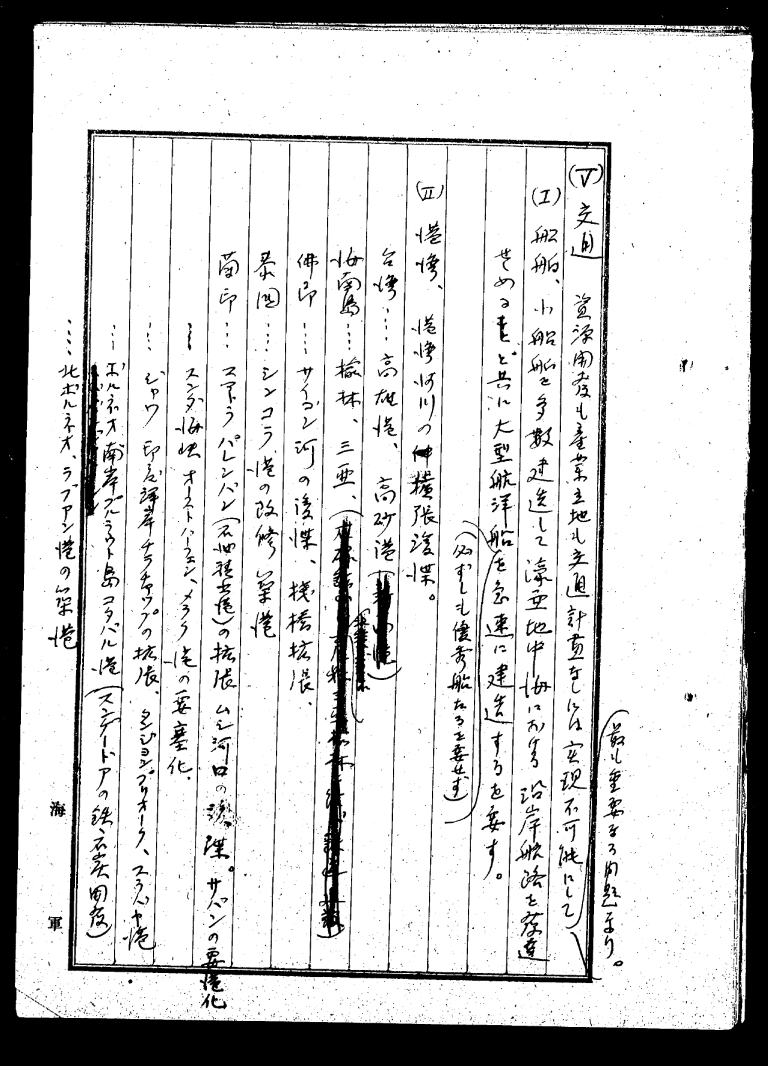 (V) 交通 資源開発も産業立地も交通計画なしには実現不可能にして
最も重要なる問題なり。
(I) 船舶、小船舶を多数建造して濠亜地中海に於ける沿岸航路を発達
せめると共に大型航洋船を急速に建造するを要す。
(必ずしも優秀船たるを要せず)
(II) 港湾、港湾河川の拡張浚渫。
台湾…. 高雄港、高砂港
海南島…. 楡林、三亜、
佛印…. サイゴン河の浚渫、棧橋拡張、
泰国…. シンゴラ港の改修築港
蘭印…. スマトラ パレンバン(石油積出港)の拡張 ムシ河口の浚渫。サバンの要港化
…. スンダ海峡 オーストハーフェン、メラク港の要塞化、
…. ジャワ 印度洋岸チラチャップの拡張、タンジョンプリオーク、スラバヤ港
…. ボルネオ南岸プルラウト島コタバル港(スンゲードアの鉄、石炭開発)
…. 北ボルネオ、ラブアン港の築港
海軍